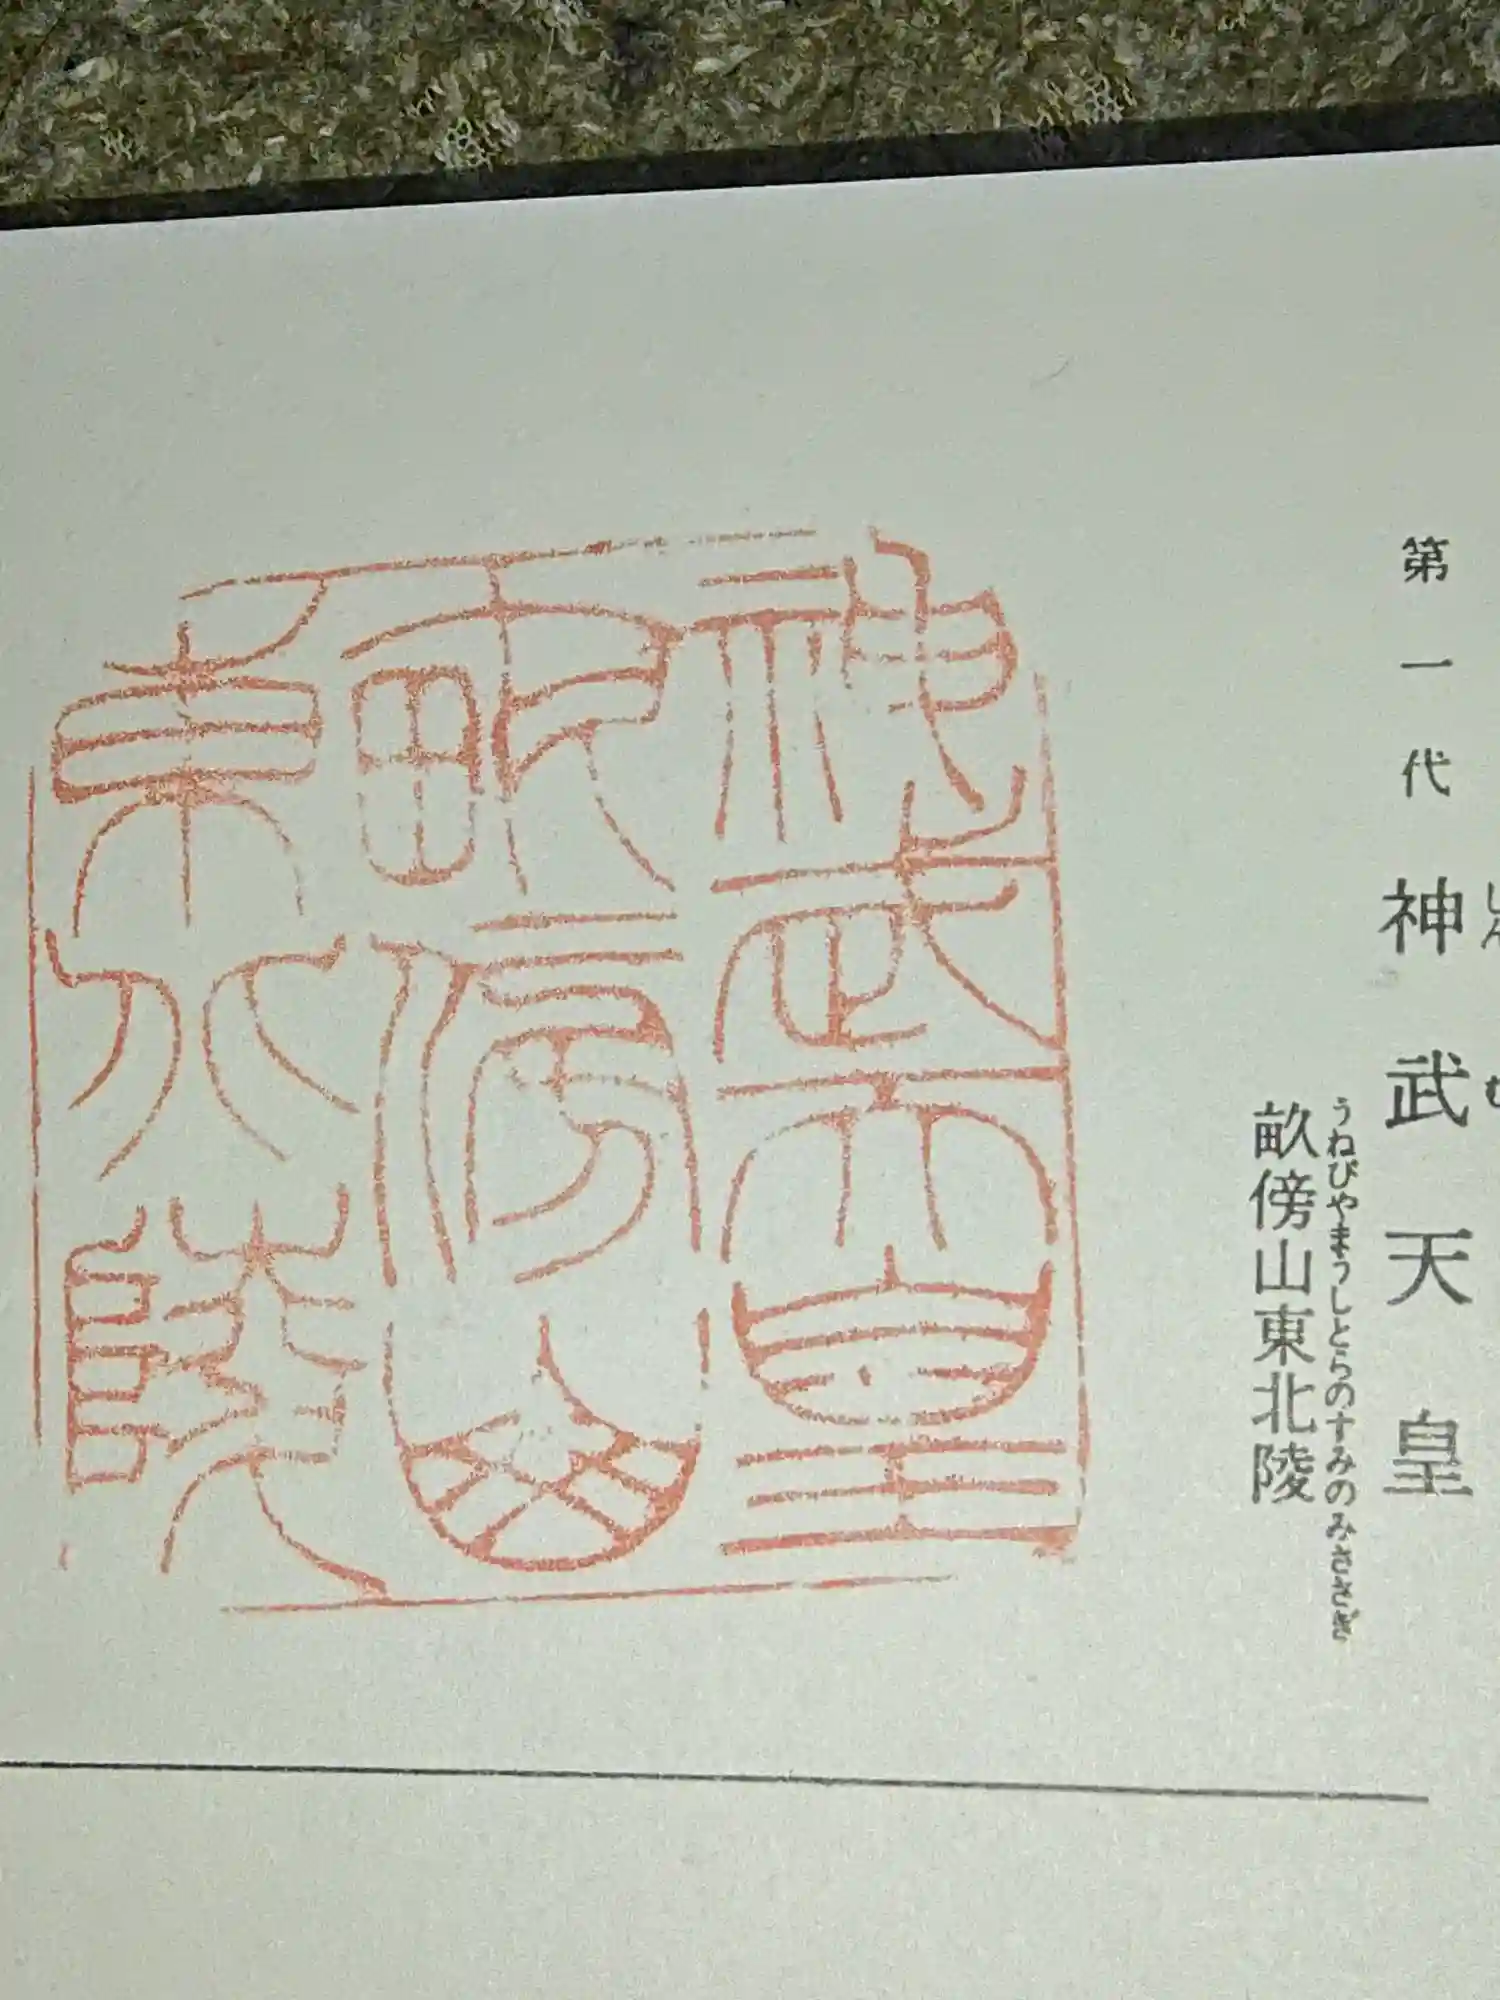 第一代 神武天皇
うねびやまうしとらのすみのみささぎ
畝傍山東北陵
神武天皇
畝傍山
東北陵